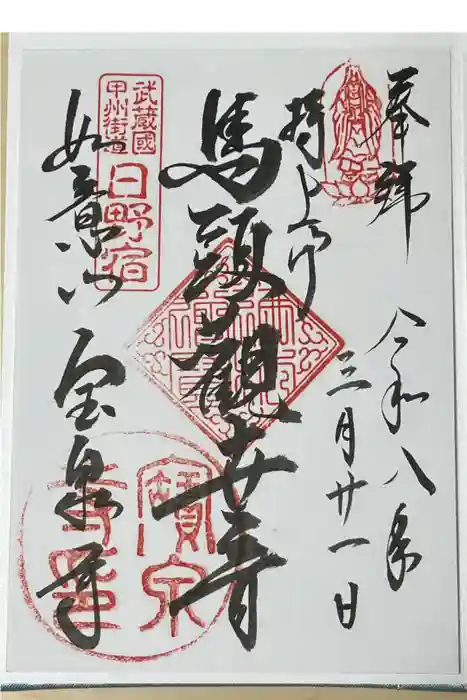 奉拝
令和八年
三月廿一日
持上ゲ
馬頭観世音
如意山 宝泉寺
武蔵國
甲州街道
日野宿
寶泉寺印